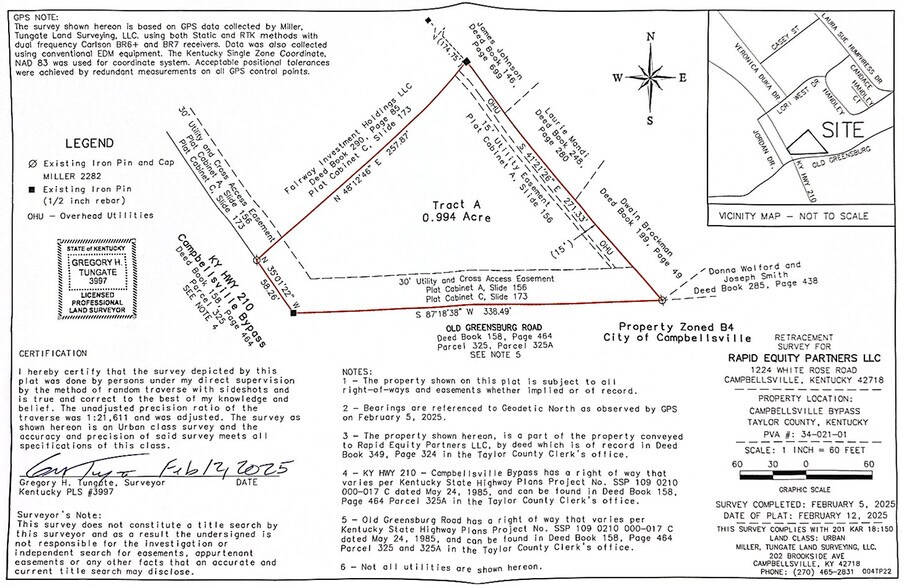 GPS NOTE:
The survey shown hereon is based on GPS data collected by Miller,
Tungate Land Surveying, LLC. using both Static and RTK methods with
dual frequency Carlson BR6+ and BR7 receivers. Data was also collected
using conventional EDM equipment. The Kentucky Single Zone Coordinate,
NAD 83 was used for coordinate system. Acceptable positional tolerances
were achieved by redundant measurements on all GPS control points.
LEGEND
Existing Iron Pin and Cap
MILLER 2282
Existing Iron Pin
(1/2 inch rebar)
OHU - Overhead Utilities
STATE of KENTUCKY
GREGORY H.
TUNGATE
3997
LICENSED
PROFESSIONAL
LAND SURVEYOR
30' Utility and Cross Access Easement
Plat Cabinet A, Slide 156
Plat Cabinet C, Slide 173
Fairway Investment Holdings LLC
Deed Book 290, Page 85
Plat Cabinet C, Slide 173
N 48°12'46" E 257.87'
(174.75')
James Johnson
Deed Book 146,
Page 699
OHU
Plat 15' Utility Easement
Cabinet A, Slide 156
S 41°21'26" E 271.33'
Laurie Mardi
Deed Book 248,
Page 280
Dwain Brockman
Deed Book 199, Page 49
OHU
(15')
Tract A
0.994 Acre
N
W E
S
VERONICA DUKA DR
CASEY ST
LAURA SUE HUMPHRESS DR
LORI WEST DR
HANDLEY
CANDACE HANDLEY CT
JORDAN DR.
SITE
OLD GREENSBURG
KY HWY 210
VICINITY MAP - NOT TO SCALE
KY HWY 210
Campbellsville Bypass
Deed Book 158, Page 464
Parcel 325
SEE NOTE 4
N 35°01'22" W
58.26'
30' Utility and Cross Access Easement
Plat Cabinet A, Slide 156
Plat Cabinet C, Slide 173
S 87°18'38" W 338.49'
Donna Wolford and
Joseph Smith
Deed Book 285, Page 438
OLD GREENSBURG ROAD
Deed Book 158, Page 464
Parcel 325, Parcel 325A
SEE NOTE 5
Property Zoned B4
City of Campbellsville
CERTIFICATION
I hereby certify that the survey depicted by this
plat was done by persons under my direct supervision
by the method of random traverse with sideshots and
is true and correct to the best of my knowledge and
belief. The unadjusted precision ratio of the
traverse was 1:21,611 and was adjusted. The survey as
shown hereon is an Urban class survey and the
accuracy and precision of said survey meets all
specifications of this class.
Feb 12, 2025
Gregory H. Tungate, Surveyor DATE
Kentucky PLS #3997
Surveyor's Note:
This survey does not constitute a title search by
this surveyor and as a result the undersigned is
not responsible for the investigation or
independent search for easements, appurtenant
easements or any other facts that an accurate and
current title search may disclose.
NOTES:
1 - The property shown on this plat is subject to all
right-of-ways and easements whether implied or of record.
2 - Bearings are referenced to Geodetic North as observed by GPS
on February 5, 2025.
3 - The property shown hereon, is a part of the property conveyed
to Rapid Equity Partners LLC, by deed which is of record in Deed
Book 349, Page 324 in the Taylor County Clerk's office.
4 - KY HWY 210 - Campbellsville Bypass has a right of way that
varies per Kentucky State Highway Plans Project No. SSP 109 0210
000-017 C dated May 24, 1985, and can be found in Deed Book 158,
Page 464 Parcel 325A in the Taylor County Clerk's office.
5 - Old Greensburg Road has a right of way that varies per
Kentucky State Highway Plans Project No. SSP 109 0210 000-017 C
dated May 24, 1985, and can be found in Deed Book 158, Page 464
Parcel 325 and 325A in the Taylor County Clerk's office.
6 - Not all utilities are shown hereon.
RETRACEMENT
SURVEY FOR
RAPID EQUITY PARTNERS LLC
1224 WHITE ROSE ROAD
CAMPBELLSVILLE, KENTUCKY 42718
PROPERTY LOCATION:
CAMPBELLSVILLE BYPASS
TAYLOR COUNTY, KENTUCKY
PVA #: 34-021-01
SCALE: 1 INCH = 60 FEET
60 30 0 60
GRAPHIC SCALE
SURVEY COMPLETED: FEBRUARY 5, 2025
DATE OF PLAT: FEBRUARY 12, 2025
THIS SURVEY COMPLIES WITH 201 KAR 18:150
LAND CLASS: URBAN
MILLER, TUNGATE LAND SURVEYING, LLC.
202 BROOKSIDE AVE
CAMPBELLSVILLE, KY 42718
PHONE: (270) 465-2831 004TP22